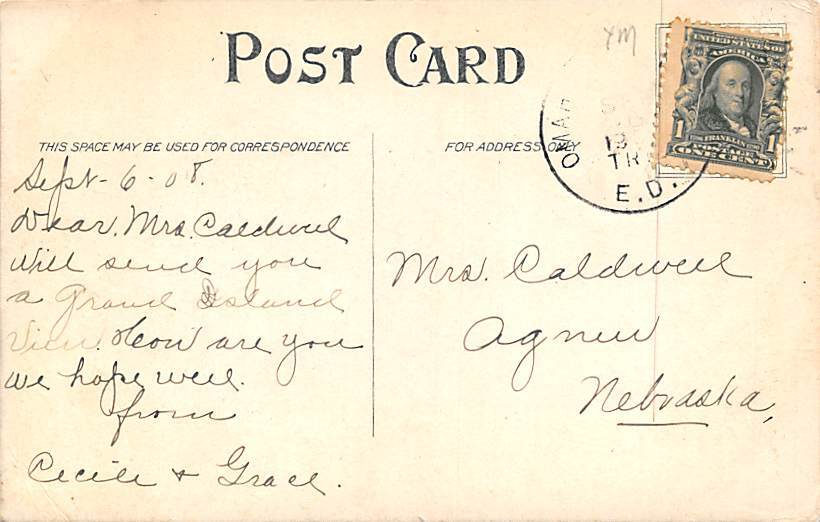 POST CARD
YM
THIS SPACE MAY BE USED FOR CORRESPONDENCE
FOR ADDRESS ONLY
Sept-6-08.
Dear, Mrs. Caldwell
Will send you
a Grand Island
View. How are you
we hope well.
from
Cecile & Grace.
Mrs. Caldwell
Agnew
Nebraska,
OMAHA
TR
E.D.
UNITED STATES OF
AMERICA
1 FRANKLIN 1
ONE CENT